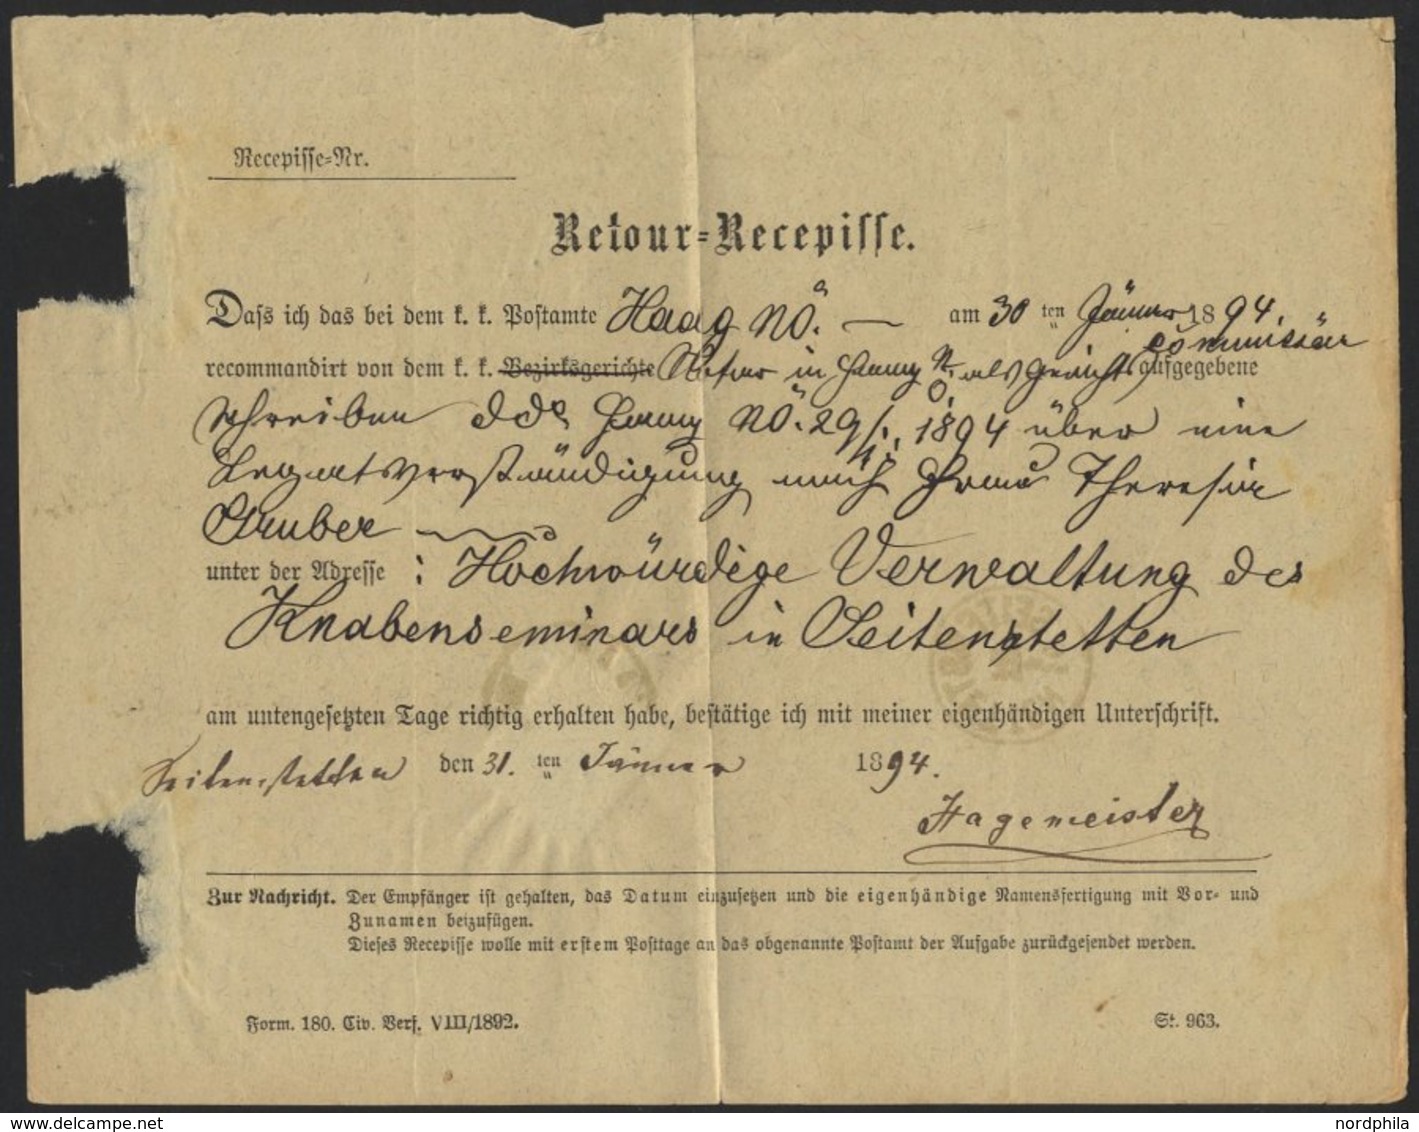 Recepisse-Nr.
Retour-Recepisse.
Dass ich das bei dem k. k. Postamte Haag NÖ. — am 30 ten Jänner 1894.
recommandirt von dem k. k. Bezirksgerichte Notar in Haag NÖ. als Gerichtscommissär aufgegebene
Schreiben ddo Haag NÖ. 29/1. 1894 über eine
Legatsverständigung nach Frau Theresia
Gruber
unter der Adresse : Hochwürdige Verwaltung des
Knabenseminars in Seitenstetten
am untengesetzten Tage richtig erhalten habe, bestätige ich mit meiner eigenhändigen Unterschrift.
Seitenstetten den 31. ten Jänner 1894.
Hagemeister
Zur Nachricht. Der Empfänger ist gehalten, das Datum einzusetzen und die eigenhändige Namensfertigung mit Vor- und
Zunamen beizufügen.
Dieses Recepisse wolle mit erstem Posttage an das obgenannte Postamt der Aufgabe zurückgesendet werden.
Form. 180. Civ. Verf. VIII/1892. St. 963.
www.delcampe.net nordphila